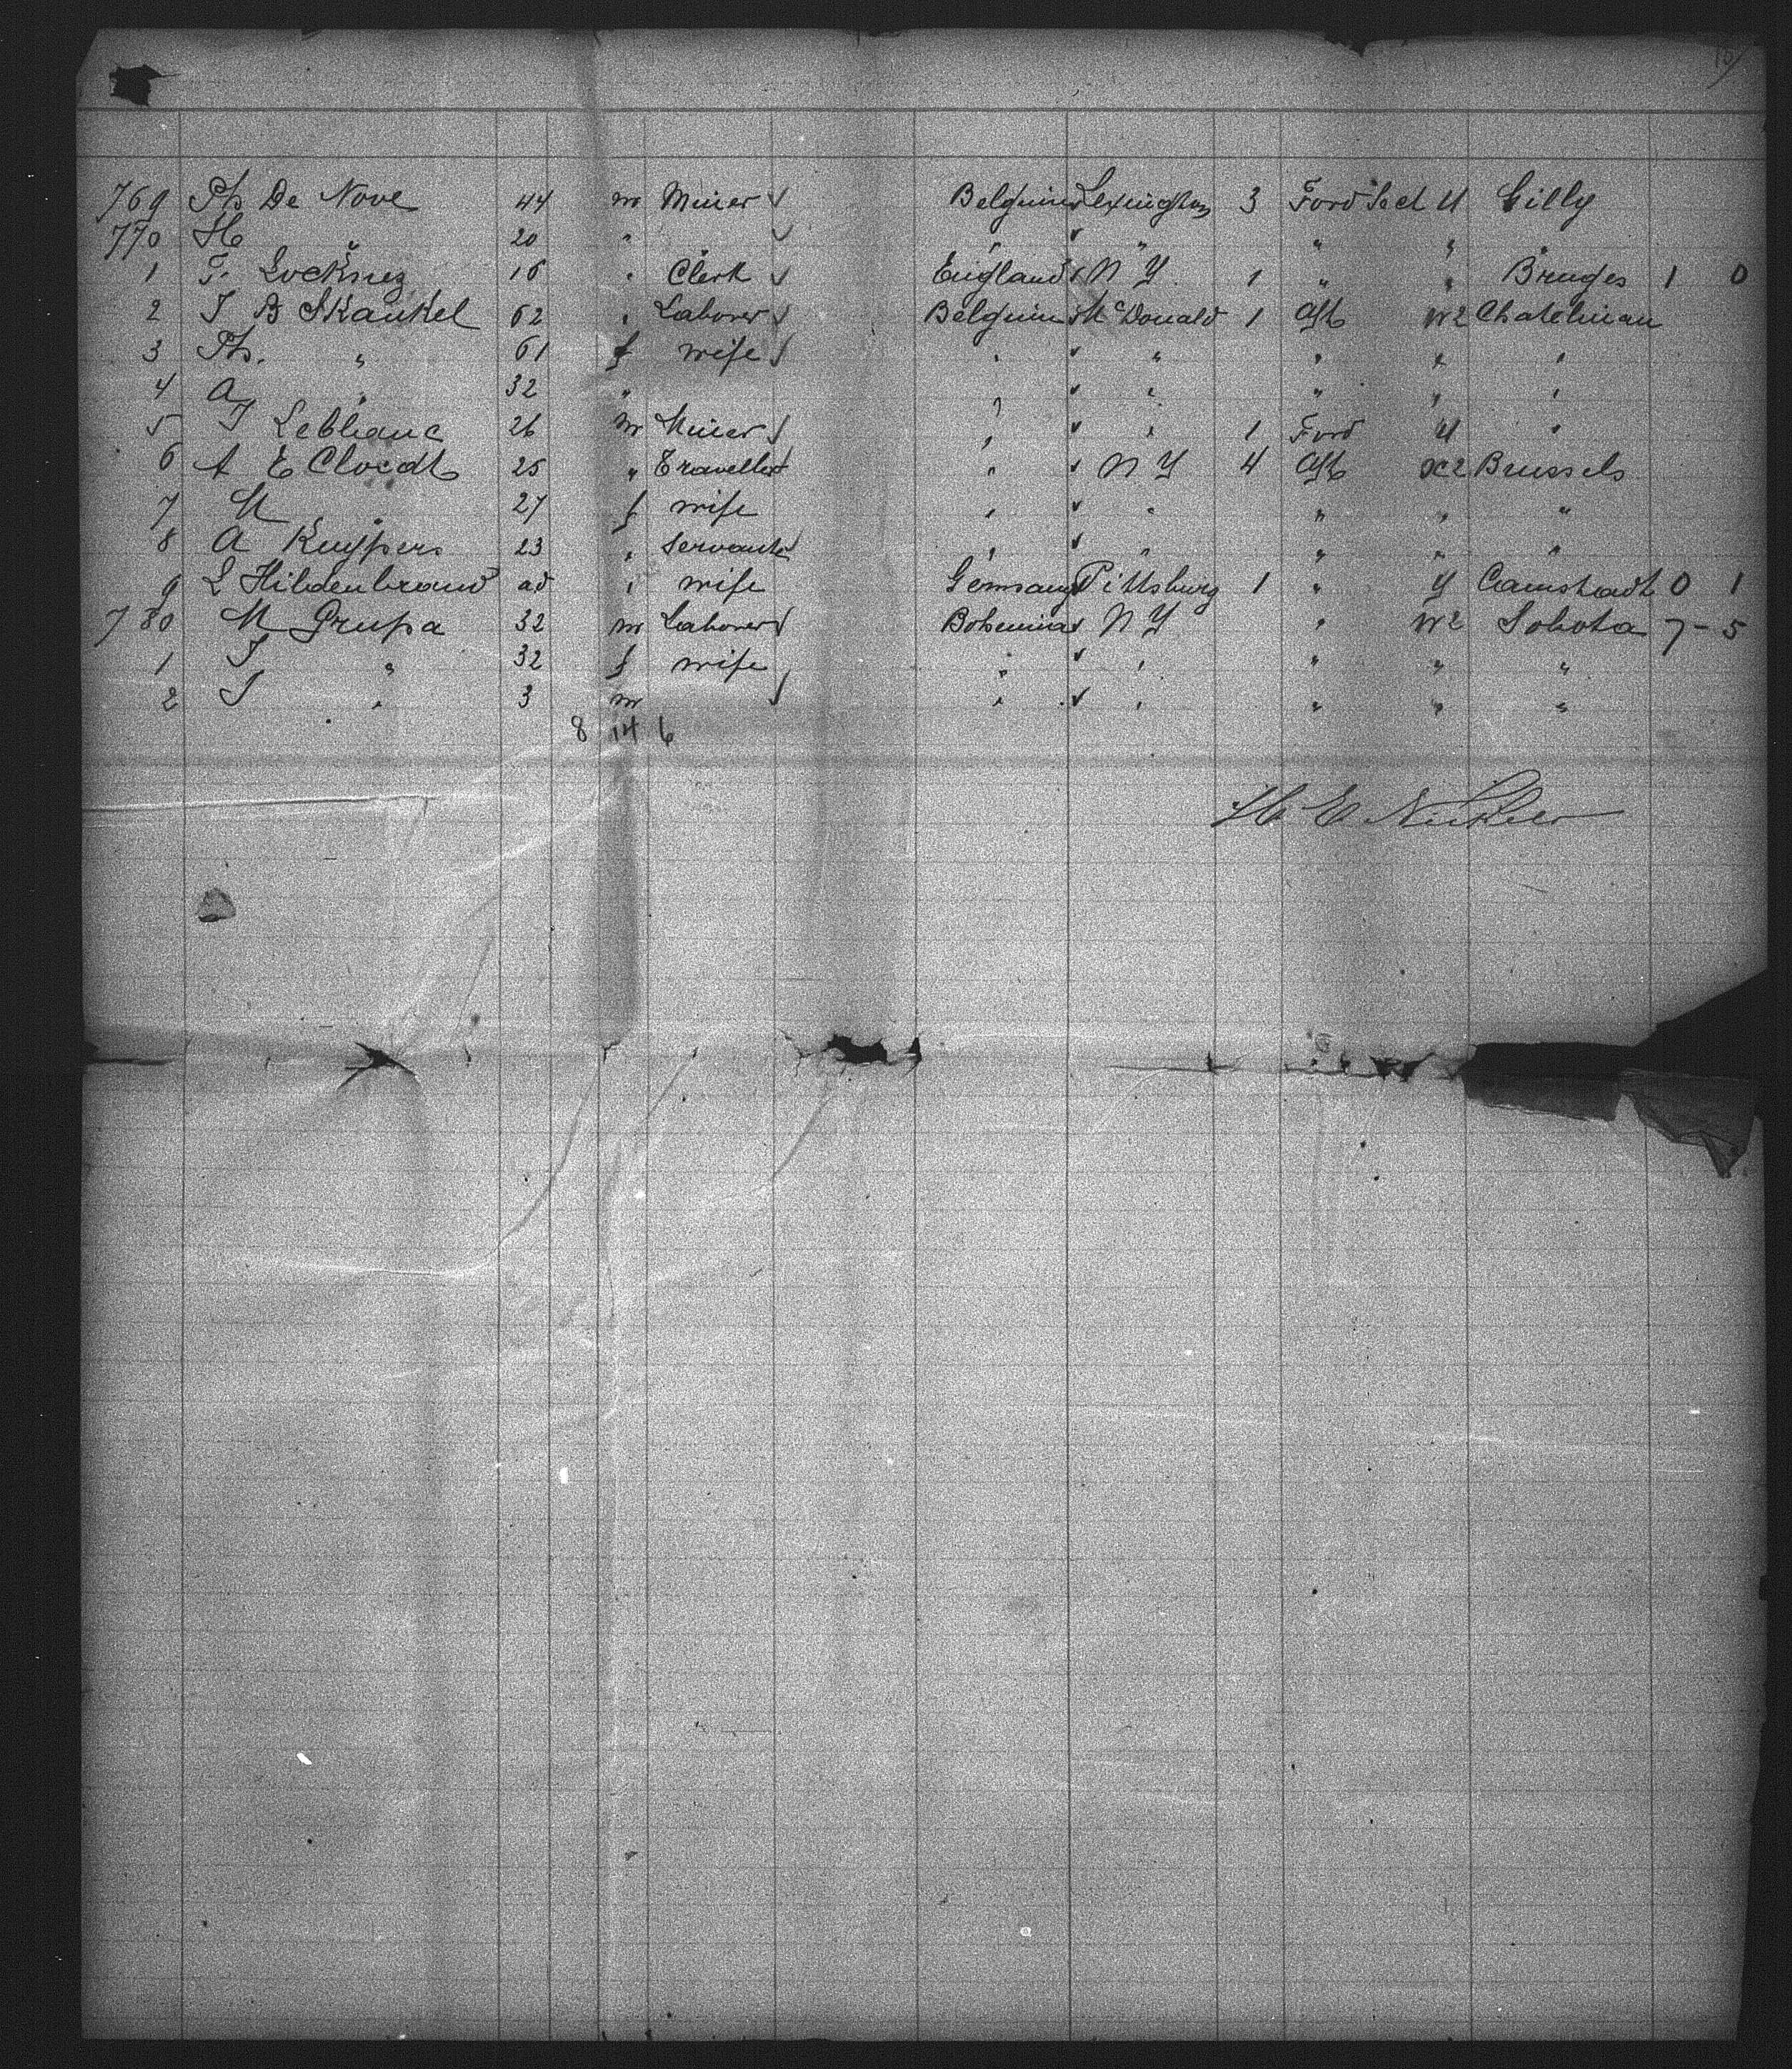 15
769 Ph De Nove 44 m Miner ✓ Belgium Lexington 3 Ford Sect U Gilly
770 H " 20 " " ✓ " ✓ " " " "
1 F. Locknez 16 " Clerk ✓ England ✓ N Y 1 " " Bruges 1 0
2 J B Skankel 62 " Laborer ✓ Belgium ✓ McDonald 1 Aft W2 Chatelinau
3 Ph. " 61 f wife ✓ " ✓ " " " "
4 A " 32 " " ✓ " " " "
5 J Leblanc 26 m Miner ✓ " ✓ " 1 Ford U "
6 A E Cloedt 25 " Traveller " ✓ N Y 4 Aft W2 Brussels
7 M " 27 f wife " ✓ " " " "
8 A Kuypers 23 " Servant ✓ " ✓ " " " "
9 L Hildenbrand ad " wife Germany Pittsburg 1 " U Cannstadt 0 1
780 M Grupa 32 m Laborer ✓ Bohemia ✓ N Y " W2 Sobota 7 - 5
1 J " 32 f wife " ✓ " " " "
2 J " 3 m ✓ " ✓ " " " "
8 14 6